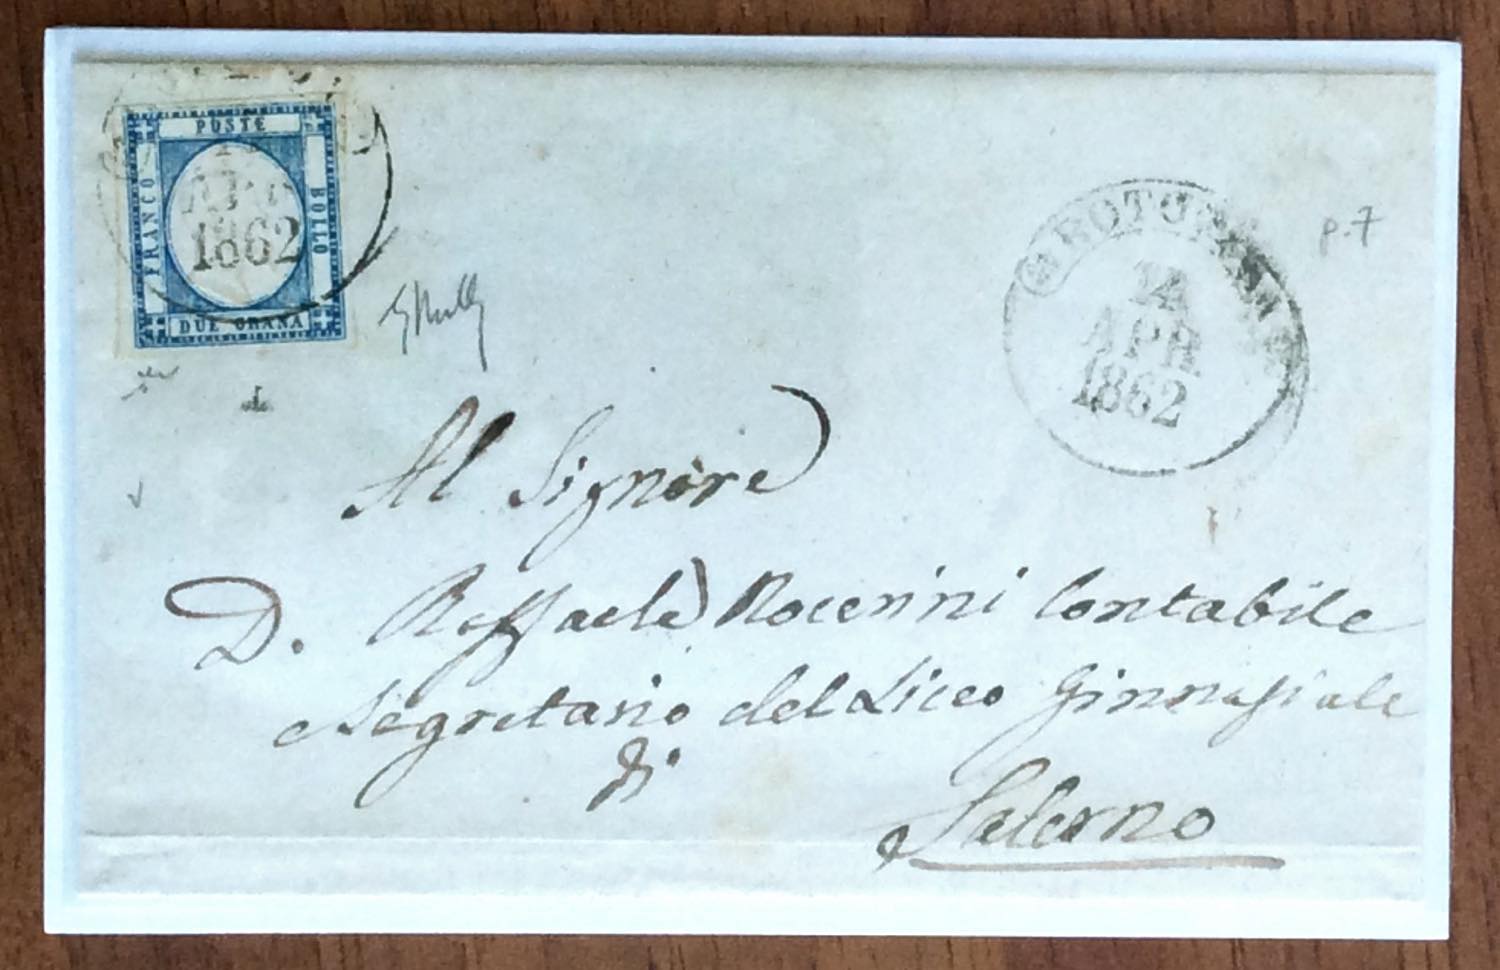 POSTE
FRANCO
BOLLO
DUE GRANA
APR
1862
14
APR
1862
p. 7
Al Signore
D. Raffaele Nocerini Contabile
Segretario del Liceo Ginnasiale
di
Salerno